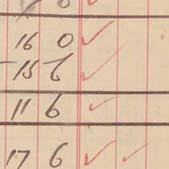 16 0 ✓
15 6 ✓
11 6 ✓
17 6 ✓ ✓